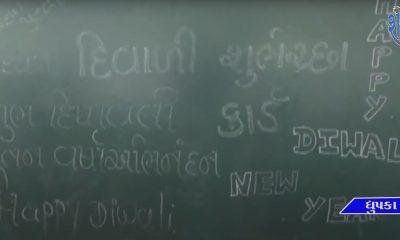 દિવાળી શુભેચ્છા
શુભ દિપાવલી કાર્ડ
નૂતન વર્ષાભિનંદન
Happy Diwali
HAPPY
DIWALI
NEW
YEAR
ધુપકા